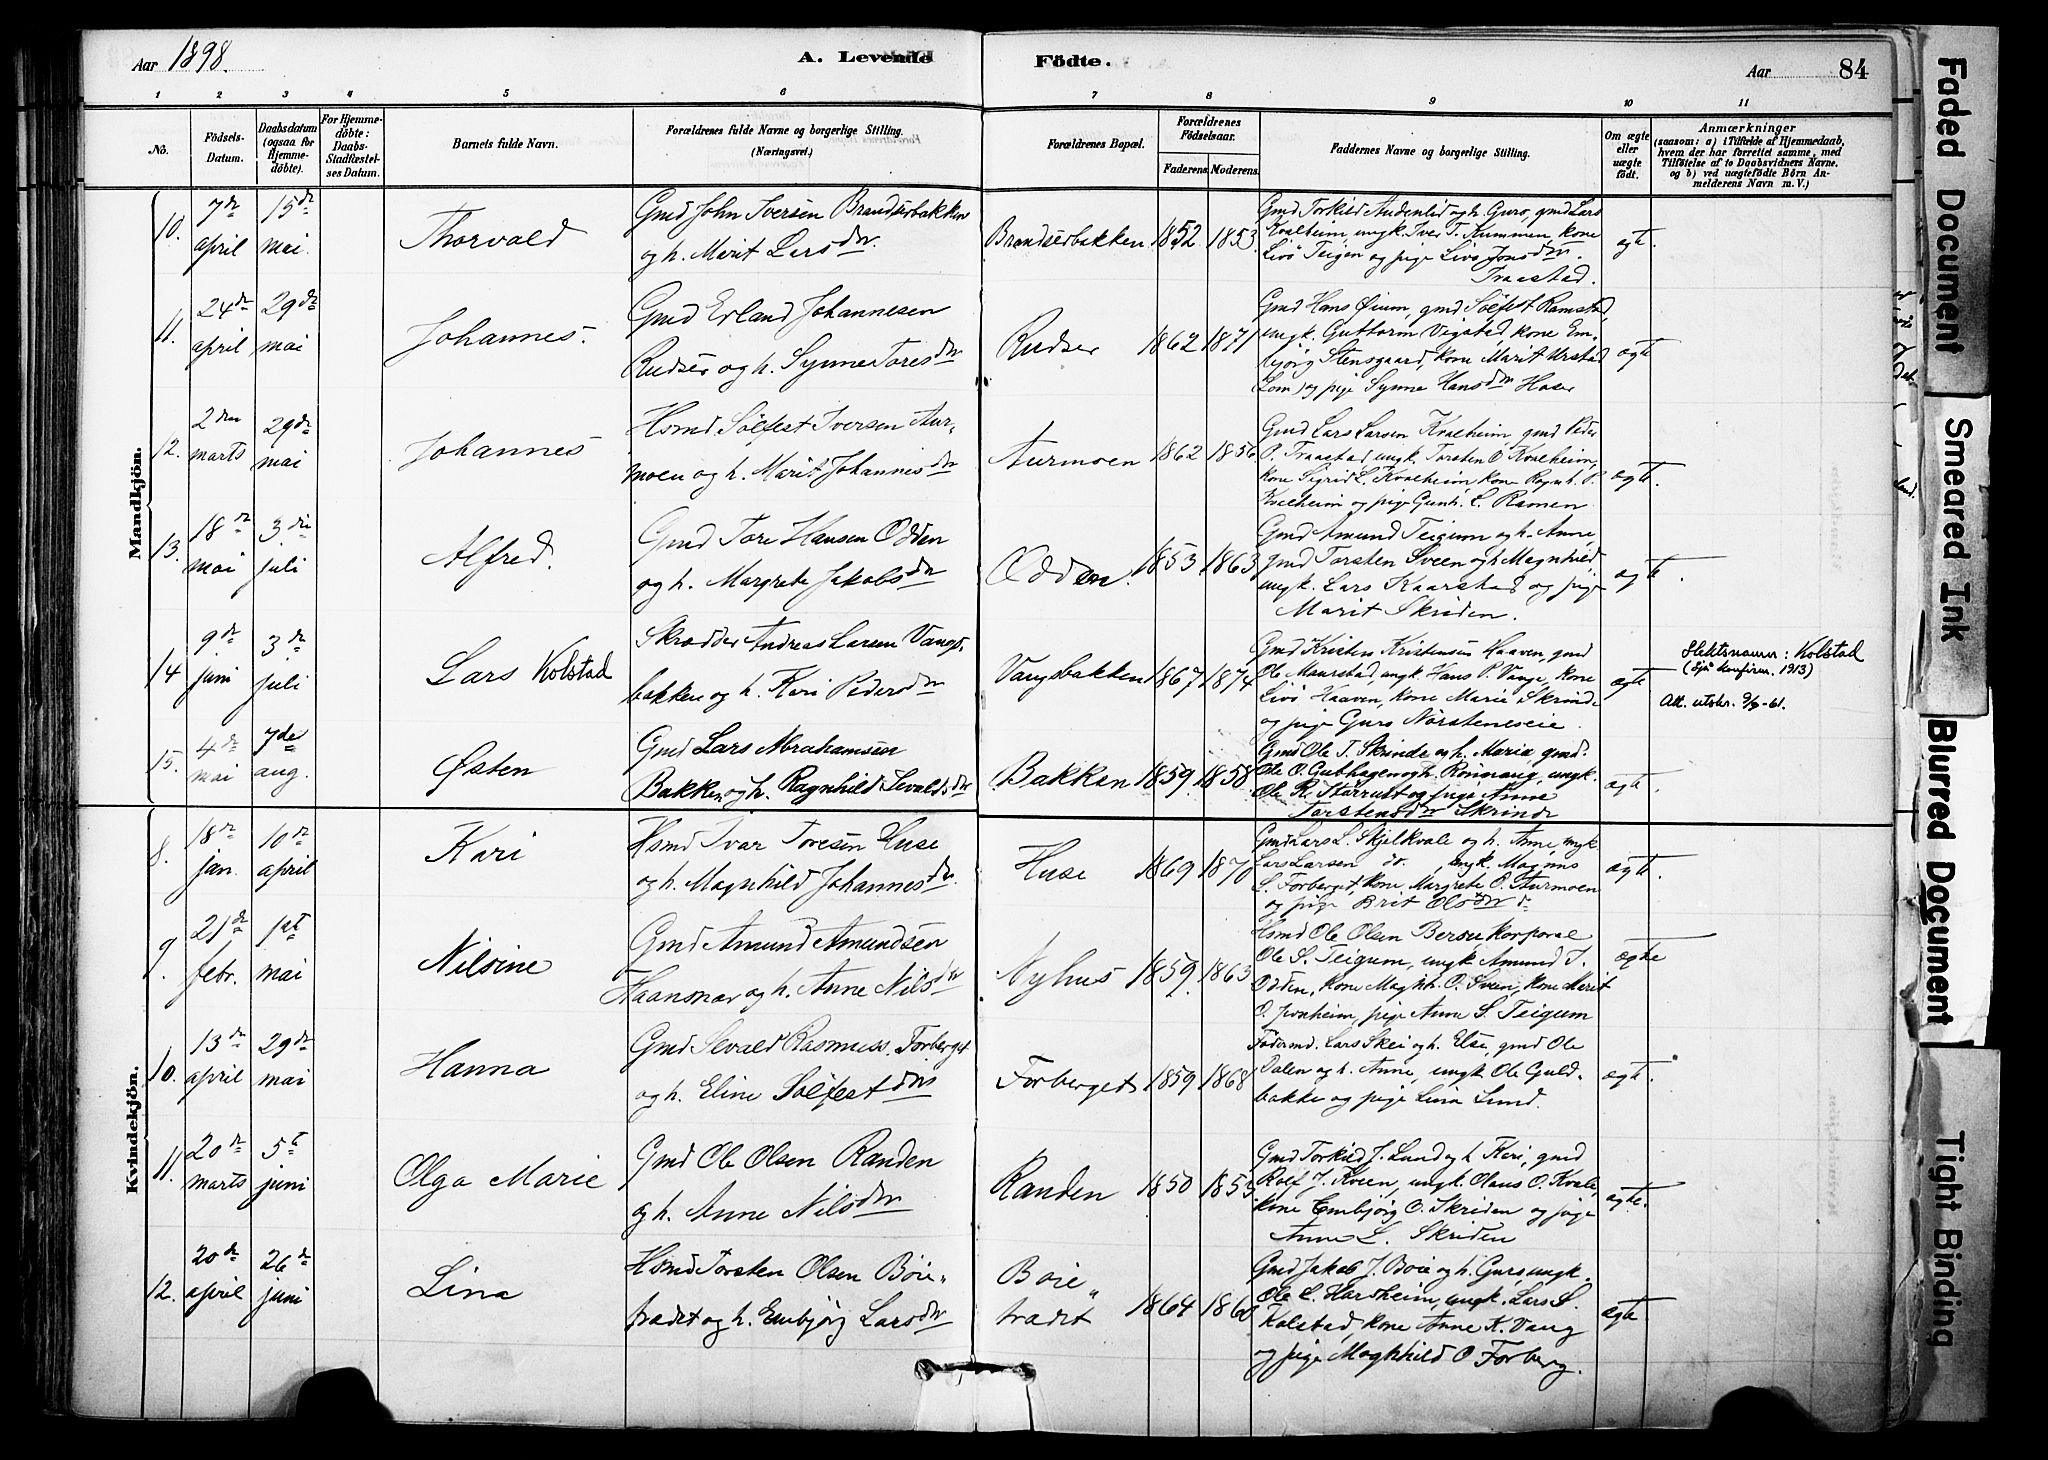 Aar 1898.
A. Levende Födte.
Aar 84
1 2 3 4 5 6 7 8 9 10 11
No.
Födsels-Datum.
Daabsdatum (ogsaa for Hjemmedöbte).
For Hjemmedöbte: Daabs-Stadfæstelses Datum.
Barnets fulde Navn.
Forældrenes fulde Navne og borgerlige Stilling.
(Næringsvei.)
Forældrenes Bopæl.
Forældrenes Födselsaar.
Faderens Moderens
Faddernes Navne og borgerlige Stilling.
Om ægte eller uægte födt.
Anmærkninger
(saasom: a) i Tilfælde af Hjemmedaab,
hvem der har forrettet samme, med
Tilföielse af to Daabsvidners Navne,
og b) ved uægtefödte Börn Anmelderens Navn m. V.)
Mandkjön.
10. 7de april 15de mai. Thorvald
Gmd John Iversen Brandserbakken
og h. Marit Larsdtr.
Brandserbakken 1852 1853
Gmd Torkild Audenlid og h. Guro, gmd Lars
Kvalheim ungk. Iver T. Kummen, kone
Livö Teigen og pige Livö Jonsdtr.
Traastad.
ægt.
11. 24de april 29de mai Johannes.
Gmd Erland Johannesen
Rudser og h. Synne Toresdtr
Rudser 1862 1871
Gmd Hans Øium, gmd Sölfest Ramstad,
ungk. Guttorm Vigstad, kone Em-
björg Stensgaard, kone Marit Urstad
Lom) og pige Synne Hansdtr Hoser
ægte
12. 2den marts 29de mai Johannes
Hsmd Sölfest Iversen Aur-
moen og h. Marit Johannisdtr
Aurmoen 1862 1856
Gmd Lars Larsen Kvalheim, gmd Peder
P. Traastad, ungk. Torsten O. Kvalheim,
kone Sigrid L. Kvalheim kone Ragnh. P.
Kvalheim og pige Gunh. L. Ramen
ægt.
13. 18de mai 3die juli Alfred.
Gmd Tore Hansen Odden
og h. Margrete Jakobsdtr
Odden. 1853 1863
Gmd Amund Teigum og h. Anne,
gmd Torsten Sveen og h Magnhild,
ungk. Lars Kaarstad og pige
Marit Skriden.
ægt.
14 9de juni 3de juli Lars Kolstad
Skrædder Andreas Larsen Vangs-
bakken og h. Kari Pedersdtr
Vangsbakken 1867 1874
Gmd Kristen Kristensen Haaven, gmd
Ole Maurstad, ungk. Hans P. Vange, kone
Livö Haaven, kone Marie Skrinde
og pige Guro Nörsteneseie.
ægte
Slektsnavn: Kolstad
(Sjå konfirm. 1913)
Att. utskr. 9/9-61.
15. 4de mai 7de aug. Østen
Gmd Lars Abrahamsen
Bakken og h. Ragnhild Sevaldsdtr
Bakken 1859 1858
Gmd Ole T. Skrinde og h. Maria, gmd.
Ole O. Gubhagen og h. Rönnaug, ungk.
Ole R. Storrust og pige Anne
Torstensdtr Skrinde
ægt.
Kvindekjön.
8. 18de jan. 10de april Kari
Hsmd Ivar Toresen Huse
og h. Magnhild Johannesdtr.
Huse 1869 1870
Gmd Lars L. Skjelkvale og h. Anne, ungk
Lars Larsen do., ungk. Magnus
S. Forberget, kone Margrete O. Aurmoen
og pige Brit Olsdtr do
ægt.
9. 21de febr. 1ste mai Nilsine
Gmd Amund Amundsen
Haansnar og h. Anne Nilsdtr
Nyhus 1859. 1863
Hsmd Ole Olsen Berse, Korporal
Ole S. Teigum, ungk Amund T.
Odden, kone Magnh. O. Sveen, kone Marit
O. Jonheim, pige Anne S. Teigum
ægte
10. 13de april 29de mai Hanna
Gmd Sevald Rasmuss. Forberget
og h. Eline Sölfestdtr
Forberget 1859 1868
Födermd. Lars Skei og h. Else, gmd Ole
Dalen og h. Anne, ungk Ole Guld-
bakke og pige Lina Lund.
ægt.
11. 20de marts 5te juni Olga Marie
Gmd Ole Olsen Randen
og h. Anne Nilsdtr
Randen 1850 1855
Gmd Torkild J. Lund og h. Kari, gmd
Rolf J. Kveen, ungk. Olaus O. Kvale,
kone Embjörg O. Skriden og pige
Anne L. Skriden
ægte.
12. 20de april 26de juni Lina
Hsmd Torsten Olsen Böie-
trædet og h. Embjörg Larsdtr
Böie-
trædet 1864 1860
Gmd Jakob J. Böie og h. Guro, ungk.
Ole L. Hardheim, ungk. Lars S.
Kolstad, kone Anne K. Vang
og pige Magnhild O Forberg.
ægte
Faded Document
Smeared Ink
Blurred Document
Tight Binding